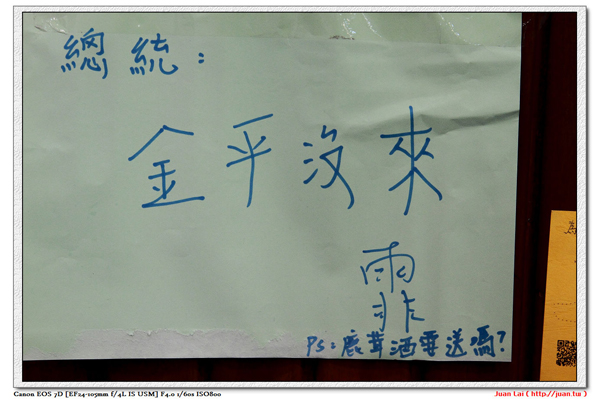 總統：
金平沒來
霏
PS：鹿茸酒要送嗎？
Canon EOS 7D [EF24-105mm f/4L IS USM] F4.0 1/60s ISO800
Juan Lai ( http://juan.tw )